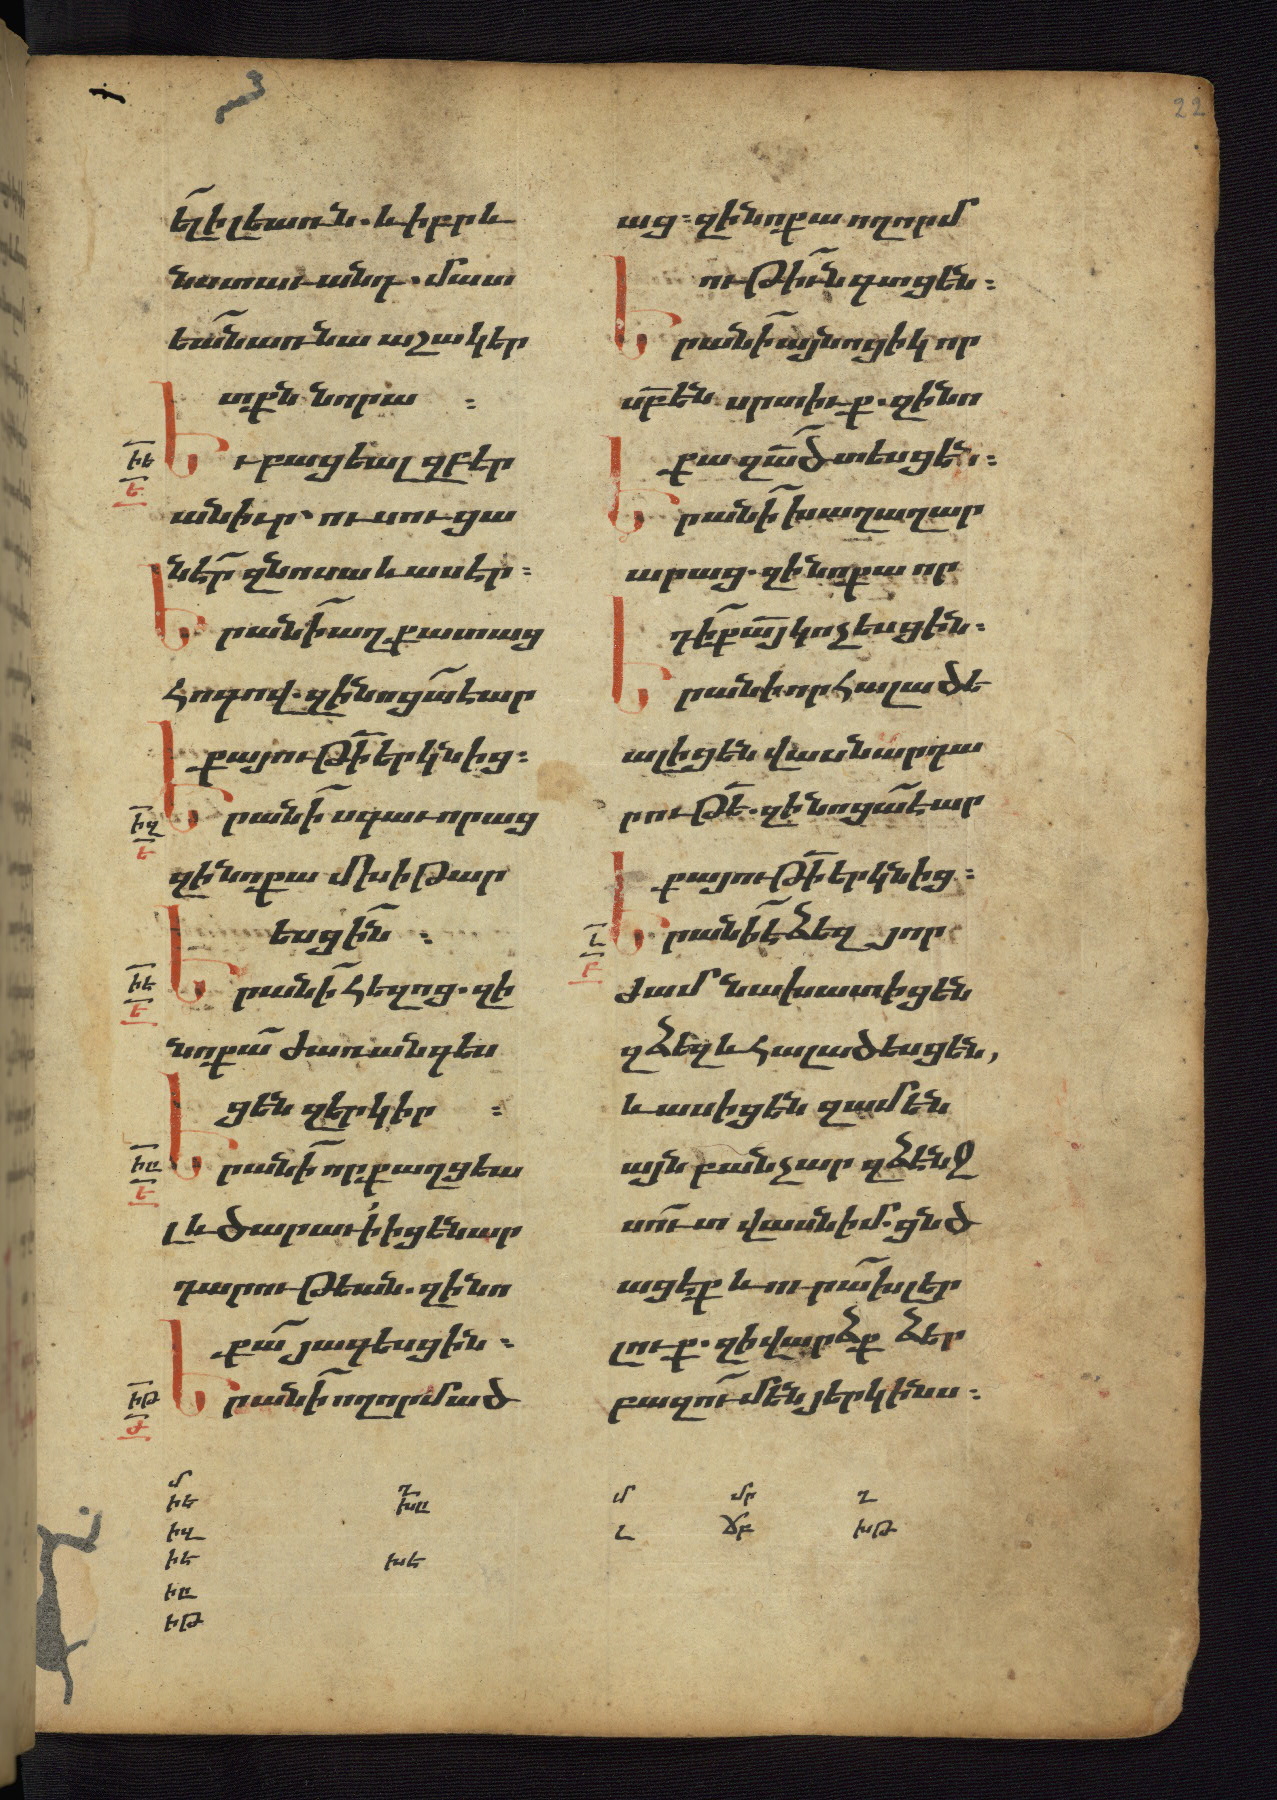 22
ել՟ի լեառն. և իբրև
նստաւ անդ. մատ
եա՟ն առ նա աշակեր
տքն նորա :
իե
Ե
Եւ բացեալ զբեր
ան իւր ուսուցա
նէր՟ զնոսա և ասէր :
Երանի՟ աղքատաց
հոգով. զի նոցա՟ է ար
քայութի՟ երկնից :
իզ
ե
Երանի՟ սգաւորաց
զի նոքա մխիթար
եսցին՟ :
իէ
ե
Երանի՟ հեզոց. զի
նոքա՟ ժառանգես
ցեն զերկիր :
իը
ե
Երանի՟ որ քաղցեա
լ և ծարաւի՛ իցեն ար
դարութեան. զի նո
քա՟ յագեսցին :
իթ
ժ
Երանի՟ ողորմած
աց : զի նոքա ողորմ
ութիւ՟ն գտցեն :
Երանի՟ այնոցիկ որ
սբ՟են սրտիւք. զի նո
քա զա՟ծ տեսցեն :
Երանի՟ խաղաղար
արաց. զի նոքա որ
դի՟ք ա՟յ կոչեսցին :
Երանի որ հալածե
ալ իցեն վասն արդա
րութե՟. զի նոցա՟ է ար
քայութի՟ երկնից :
լ
բ
Երանի՟ է ձեզ յոր
ժամ նախատիցեն
զձեզ և հալածեսցեն,
և ասիցեն զամեն
այն բան չար զձէնջ
սու՟տ վասն իմ. ցնծ
ացեք և ուրա՟խ լեր
լուք. զի վարձք ձեր
բազու՟մ են յերկինս :
մ
իե
իզ
իէ
իը
իթ
ղ
խը
խե
մ
լ
մր
ճբ
ղ
խթ